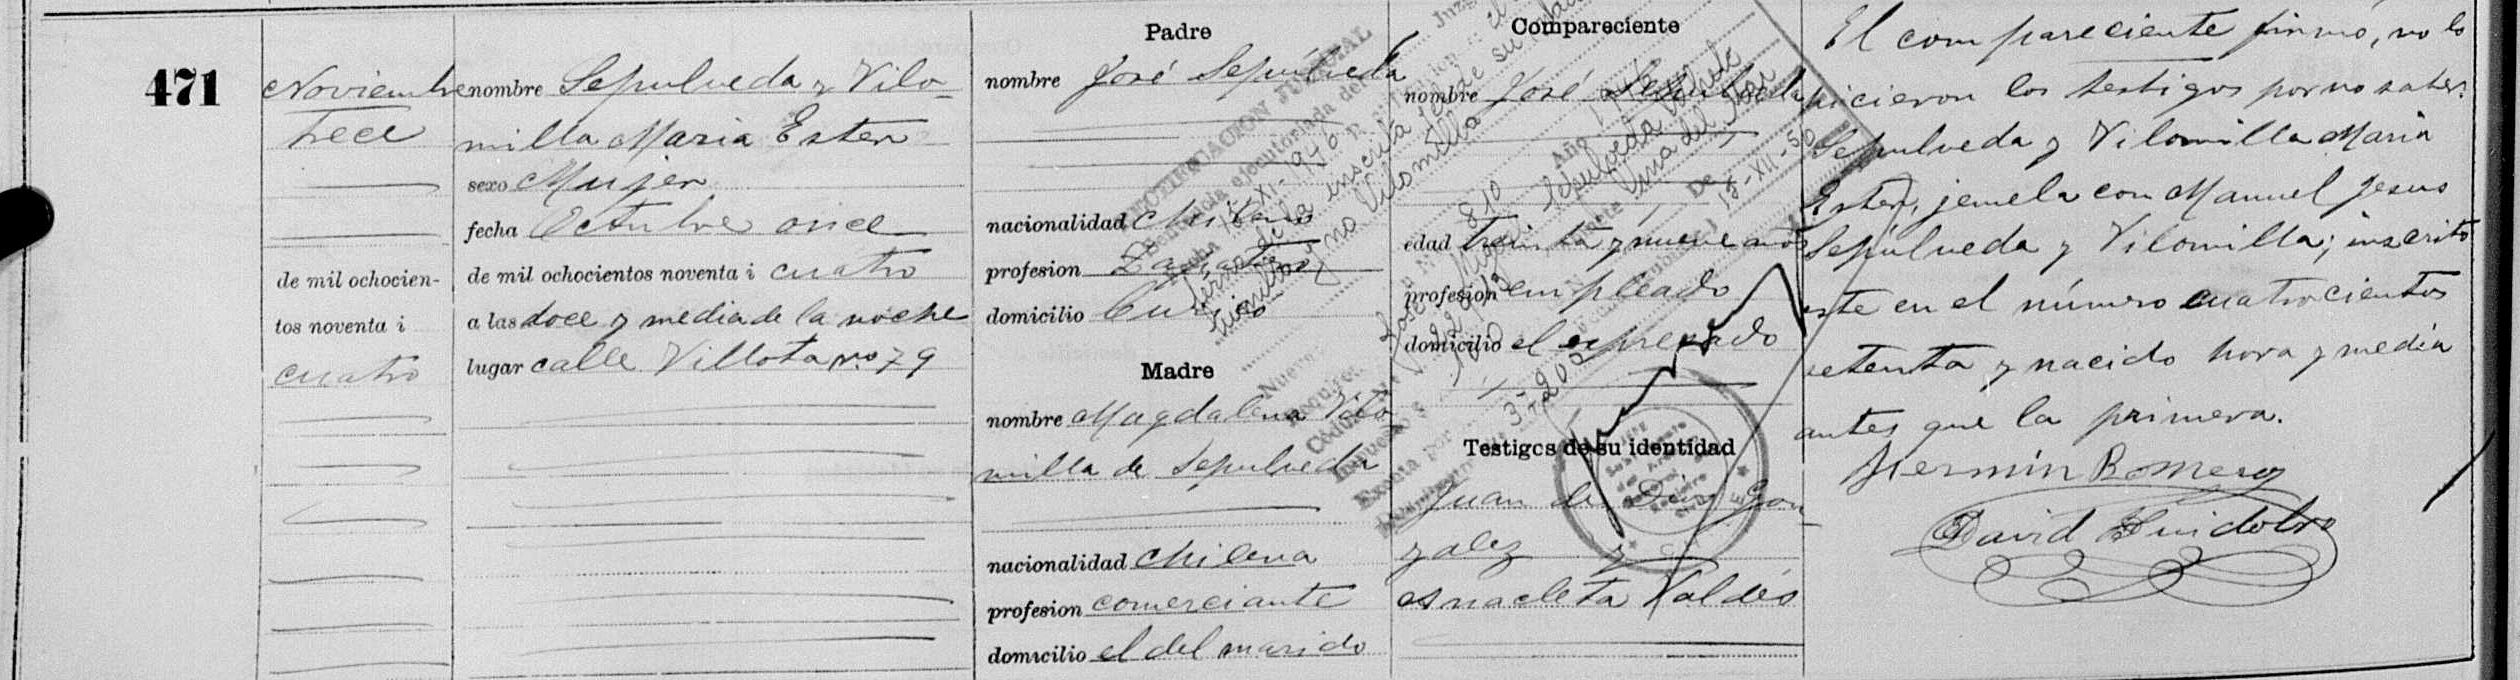 471
Noviembre
trece
de mil ochocien-
tos noventa i
cuatro
nombre Sepulveda y Vilo-
milla Maria Ester
sexo Mujer
fecha Octubre once
de mil ochocientos noventa i cuatro
a las doce y media de la noche
lugar calle Villota no. 79
Padre
nombre José Sepulveda
nacionalidad chileno
profesion Zapatero
domicilio Curicó
Madre
nombre Magdalena Vilo
milla de Sepulveda
nacionalidad chilena
profesion comerciante
domicilio el del marido
Compareciente
nombre José Sepulveda
edad treinta y nueve años
profesion empleado
domicilio el espresado
Testigos de su identidad
Juan de Dios Gon
zalez y
Anacleta Valdés
El compareciente firmó, no lo
hicieron los testigos por no saber.
Sepulveda y Vilomilla Maria
Ester, jemela con Manuel Jesus
Sepúlveda y Vilomilla; inscrito
este en el número cuatrocientos
setenta y nacido hora y media
antes que la primera.
Fermin Romero
David Huidobro
RECTIFICACION JUDICIAL
ejecutoriada del
18-XI-1946
inscrita
Vilomilla
Año
810
Sepulveda
Viña del Mar
De
18-XII-50